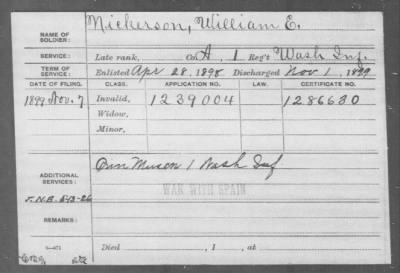 NAME OF SOLDIER: Nickerson, William E.
SERVICE: Late rank, Co. A, 1 Reg't Wash Inf.
TERM OF SERVICE: Enlisted Apr 28, 1898 Discharged Nov 1, 1899
DATE OF FILING. CLASS. APPLICATION NO. LAW. CERTIFICATE NO.
1899 Nov. 7 Invalid, 1239004 1286630
Widow,
Minor,
ADDITIONAL SERVICES: 1 Wash Inf
WAR WITH SPAIN
REMARKS:
Died , 1 , at